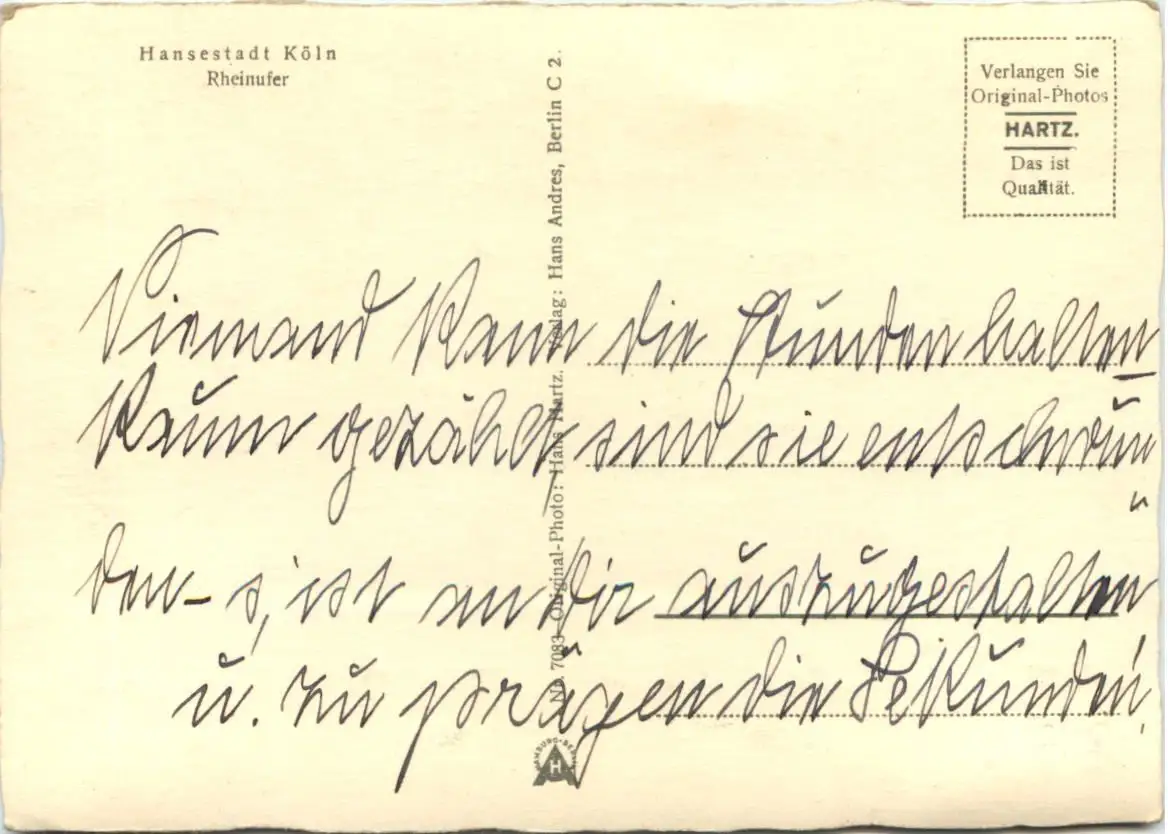 Hansestadt Köln
Rheinufer
Verlangen Sie
Original-Photos
HARTZ.
Das ist
Qualität.
Nr. 7083 Original-Photo: Hans Hartz. Verlag: Hans Andres, Berlin C 2.
Niemand kann die Stunden halten
Kaum gezählt sind sie entschwun
den - s, ist an dir auszugestalten
u. zu prägen die Sekunden,
HAMBURG-BERLIN
H